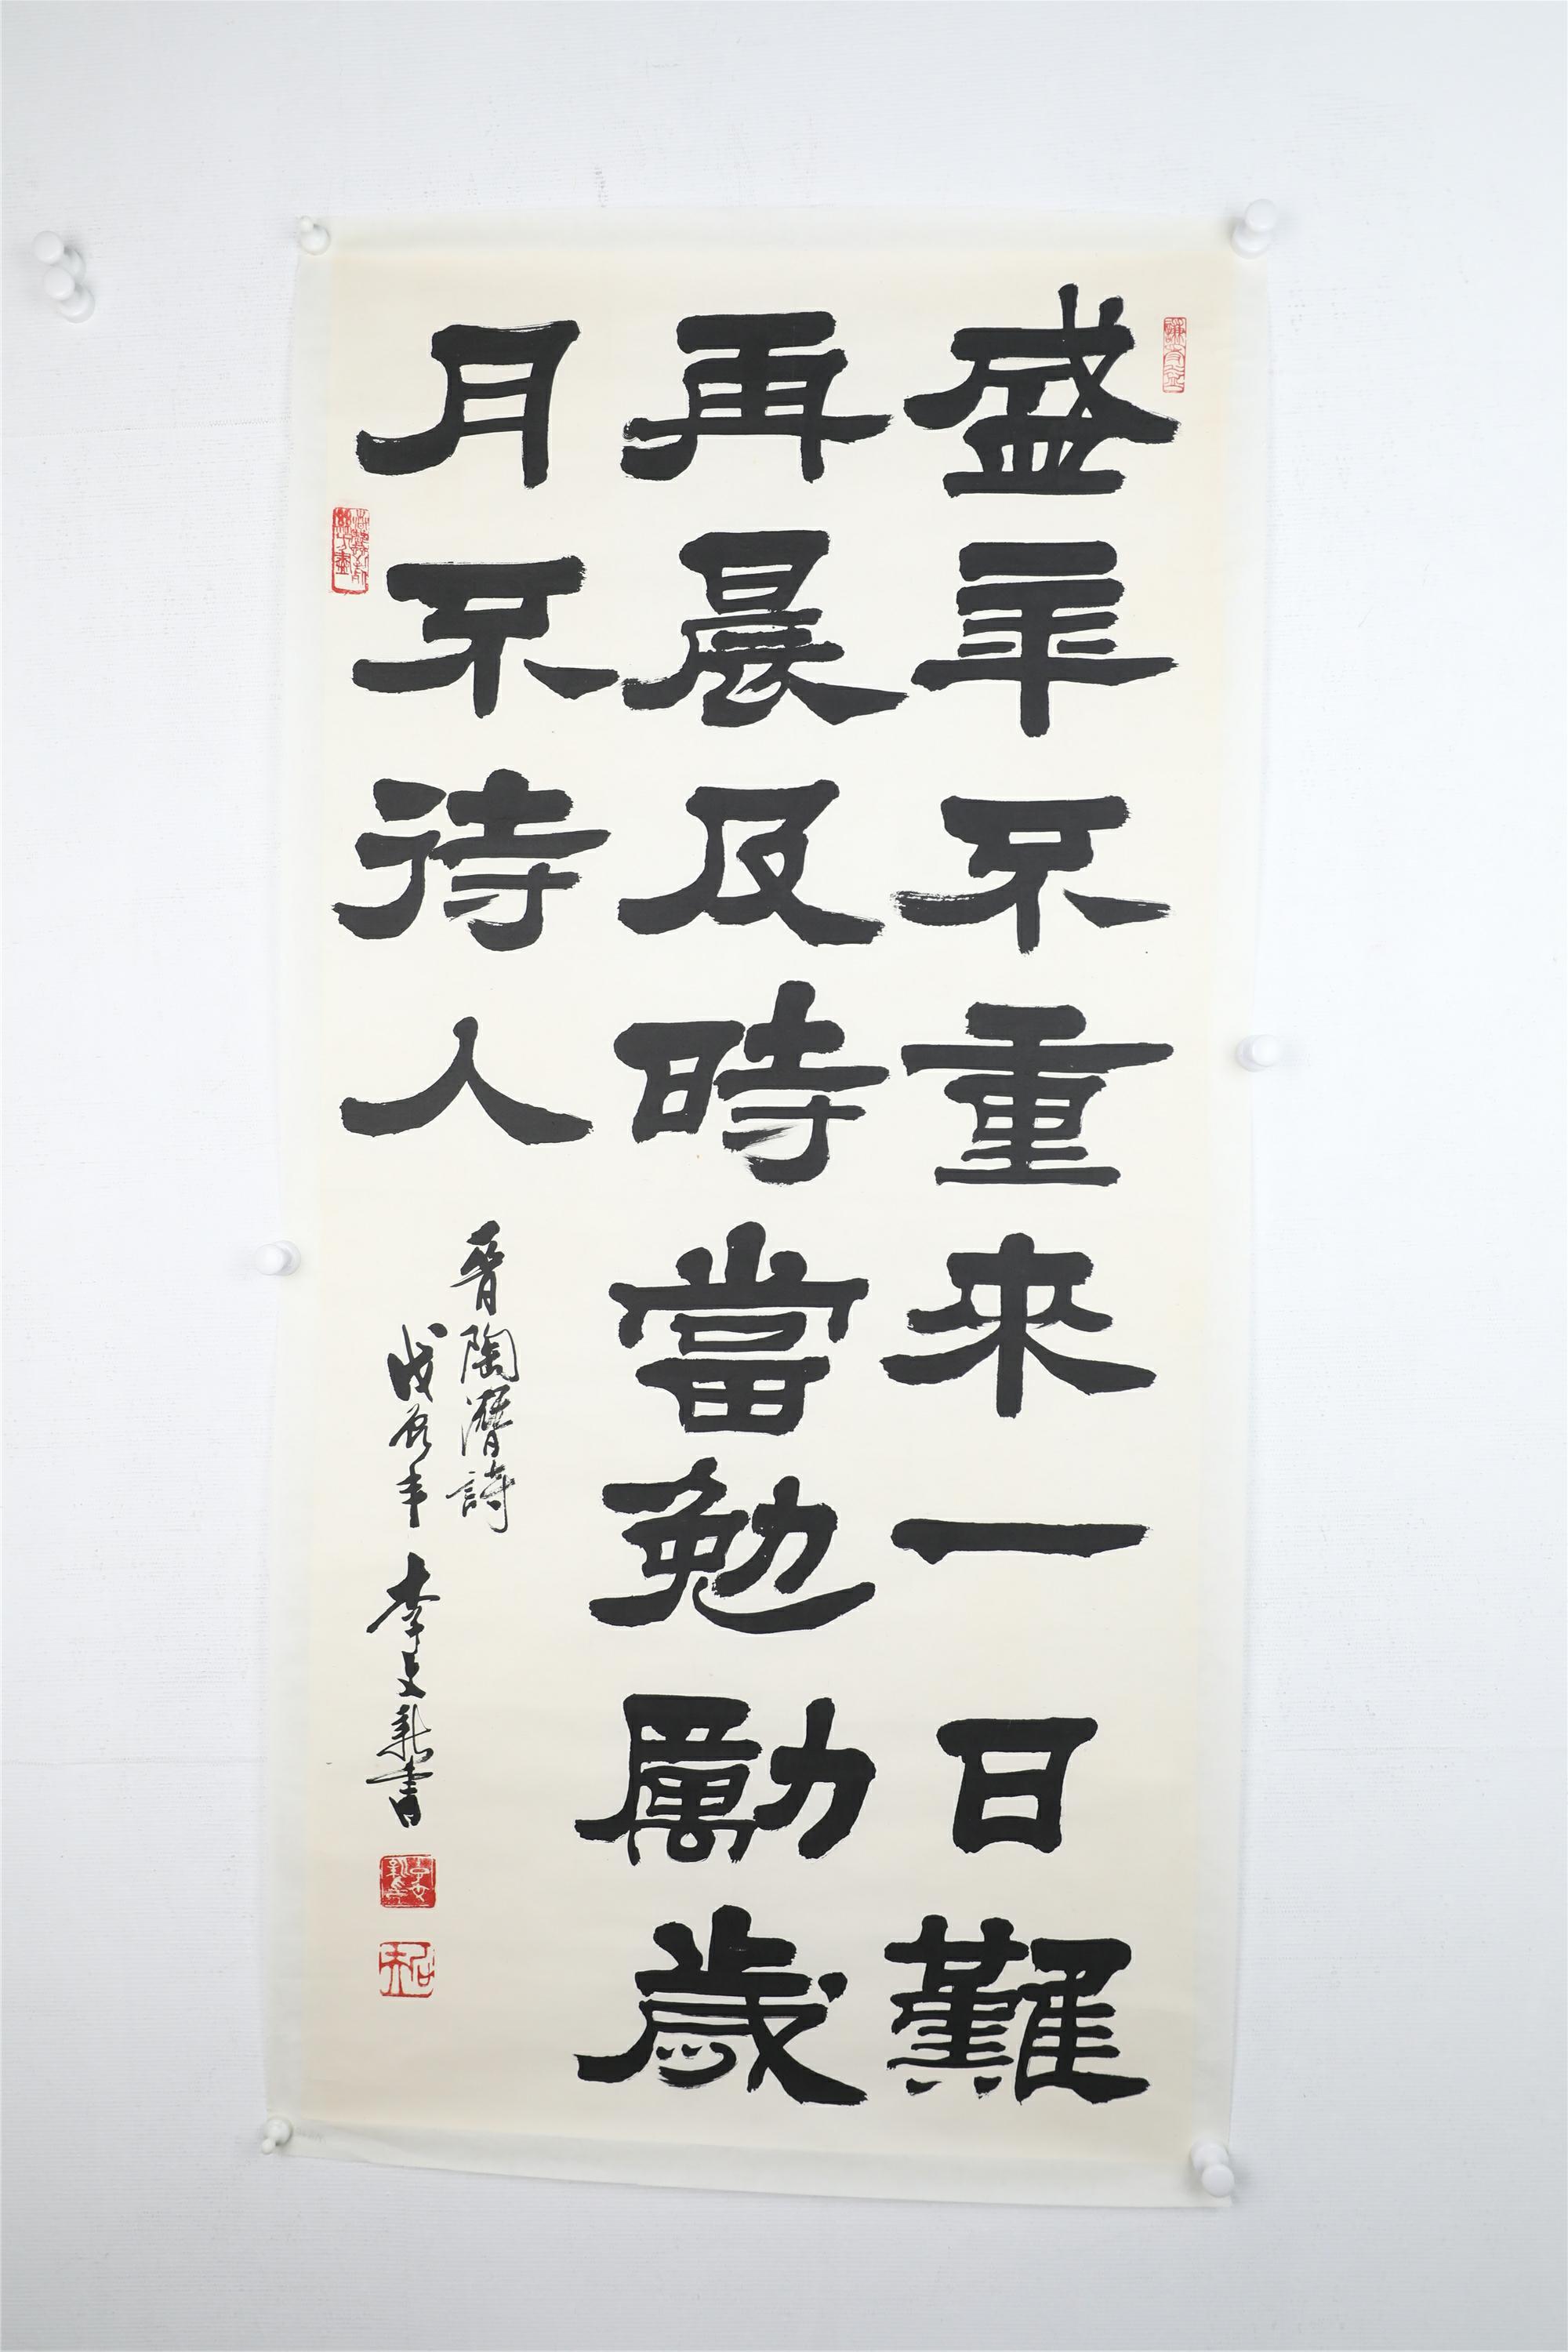 盛年不重来一日難
再晨及時當勉勵歲
月不待人
晉陶潛詩
戊辰年 李文新書